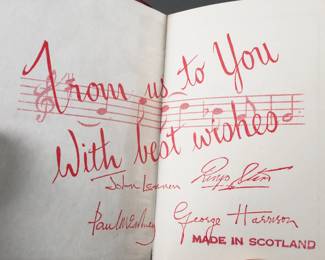 From us to You
With best wishes
John Lennon
Ringo Starr
Paul McCartney
George Harrison
MADE IN SCOTLAND